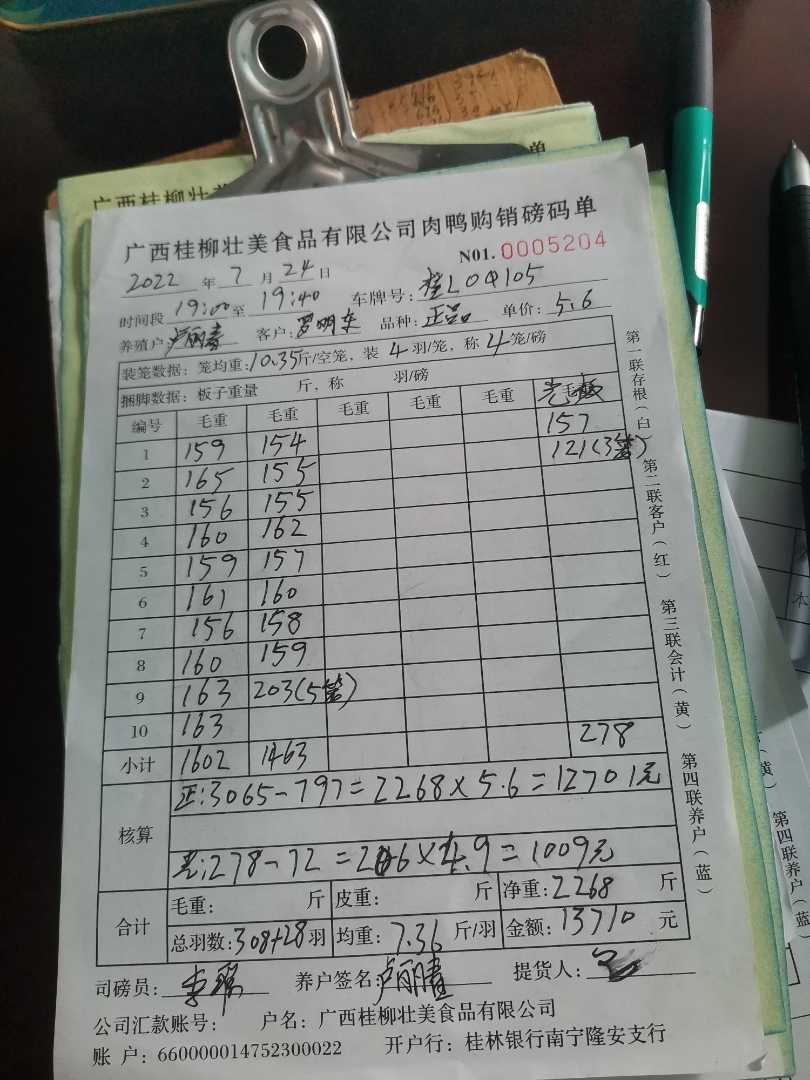 广西桂柳壮美食品有限公司肉鸭购销磅码单
NO1. 0005204
2022 年 7 月 24 日
时间段 19:00 至 19:40 车牌号: 桂L0Q105
养殖户: 卢丽春 客户: 罗明东 品种: 正品 单价: 5.6
装笼数据: 笼均重: 10.35 斤/空笼, 装 4 羽/笼, 称 4 笼/磅
捆脚数据: 板子重量 斤, 称 羽/磅
编号 毛重 毛重 毛重 毛重 毛重
157
1 159 154 121(3笼)
2 165 155
3 156 155
4 160 162
5 159 157
6 161 160
7 156 158
8 160 159
9 163 203(5笼)
10 163 278
小计 1602 1463
核算
正:3065-797=2268×5.6=12701元
:278-72=206×4.9=1009元
合计
毛重: 斤 皮重: 斤 净重: 2268 斤
总羽数: 308+28 羽 均重: 7.36 斤/羽 金额: 13710 元
司磅员: 养户签名: 卢丽春 提货人:
公司汇款账号: 户名: 广西桂柳壮美食品有限公司
账 户: 660000014752300022 开户行: 桂林银行南宁隆安支行
第一联存根(白) 第二联客户(红) 第三联会计(黄) 第四联养户(蓝)